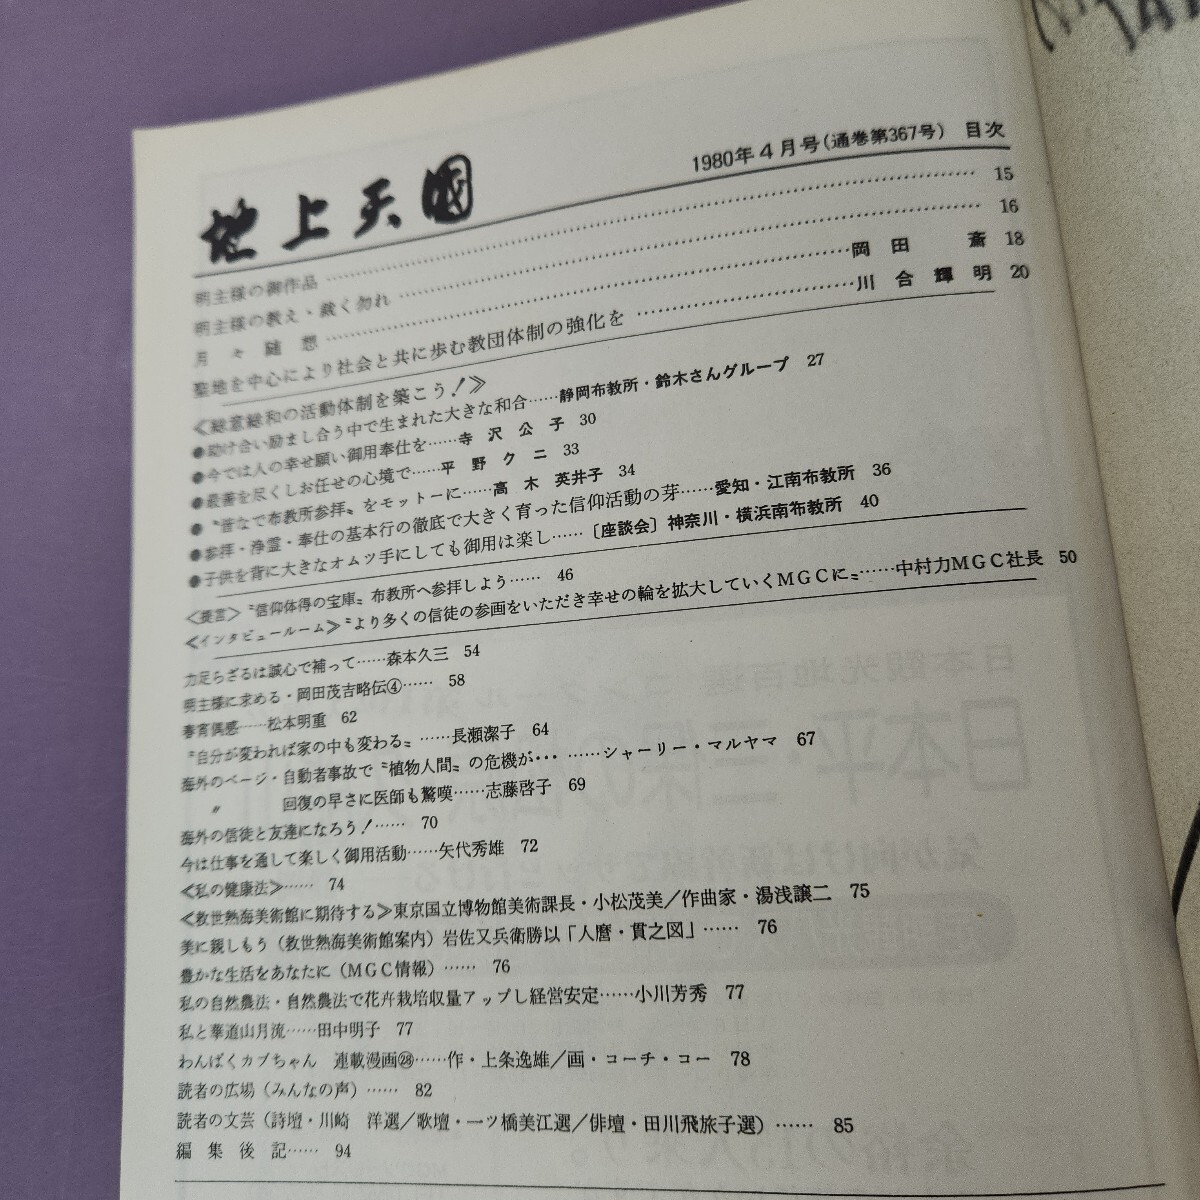 地上天國
1980年4月号(通巻第367号) 目次
明主様の御作品 …… 15
明主様の教え・裁く勿れ …… 16
月々随想 …… 岡田 斎 18
聖地を中心により社会と共に歩む教団体制の強化を …… 川合輝明 20
≪総意総和の活動体制を築こう!≫
●助け合い励まし合う中で生まれた大きな和合……静岡布教所・鈴木さんグループ 27
●今では人の幸せ願い御用奉仕を……寺沢公子 30
●最善を尽くしお任せの心境で……平野クニ 33
●〝昔なで布教所参拝〟をモットーに……高木英井子 34
●参拝・浄霊・奉仕の基本行の徹底で大きく育った信仰活動の芽……愛知・江南布教所 36
●子供を背に大きなオムツ手にしても御用は楽し……〔座談会〕神奈川・横浜南布教所 40
<提言>〝信仰体得の宝庫〟布教所へ参拝しよう…… 46
≪インタビュールーム≫〝より多くの信徒の参画をいただき幸せの輪を拡大していくMGCに〟……中村力MGC社長 50
力足らざるは誠心で補って……森本久三 54
明主様に求める・岡田茂吉略伝④…… 58
春宵偶感……松本明重 62
〝自分が変われば家の中も変わる〟……長瀬潔子 64
海外のページ・自動者事故で〝植物人間〟の危機が・・・……シャーリー・マルヤマ 67
〃 回復の早さに医師も驚嘆……志藤啓子 69
海外の信徒と友達になろう!…… 70
今は仕事を通して楽しく御用活動……矢代秀雄 72
≪私の健康法≫…… 74
≪救世熱海美術館に期待する≫東京国立博物館美術課長・小松茂美/作曲家・湯浅譲二 75
美に親しもう(救世熱海美術館案内)岩佐又兵衛勝以「人麿・貫之図」…… 76
豊かな生活をあなたに(MGC情報)…… 76
私の自然農法・自然農法で花卉栽培収量アップし経営安定……小川芳秀 77
私と華道山月流……田中明子 77
わんぱくカブちゃん 連載漫画㉘……作・上条逸雄/画・コーチ・コー 78
読者の広場(みんなの声)…… 82
読者の文芸(詩壇・川崎 洋選/歌壇・一ツ橋美江選/俳壇・田川飛旅子選)…… 85
編集後記…… 94